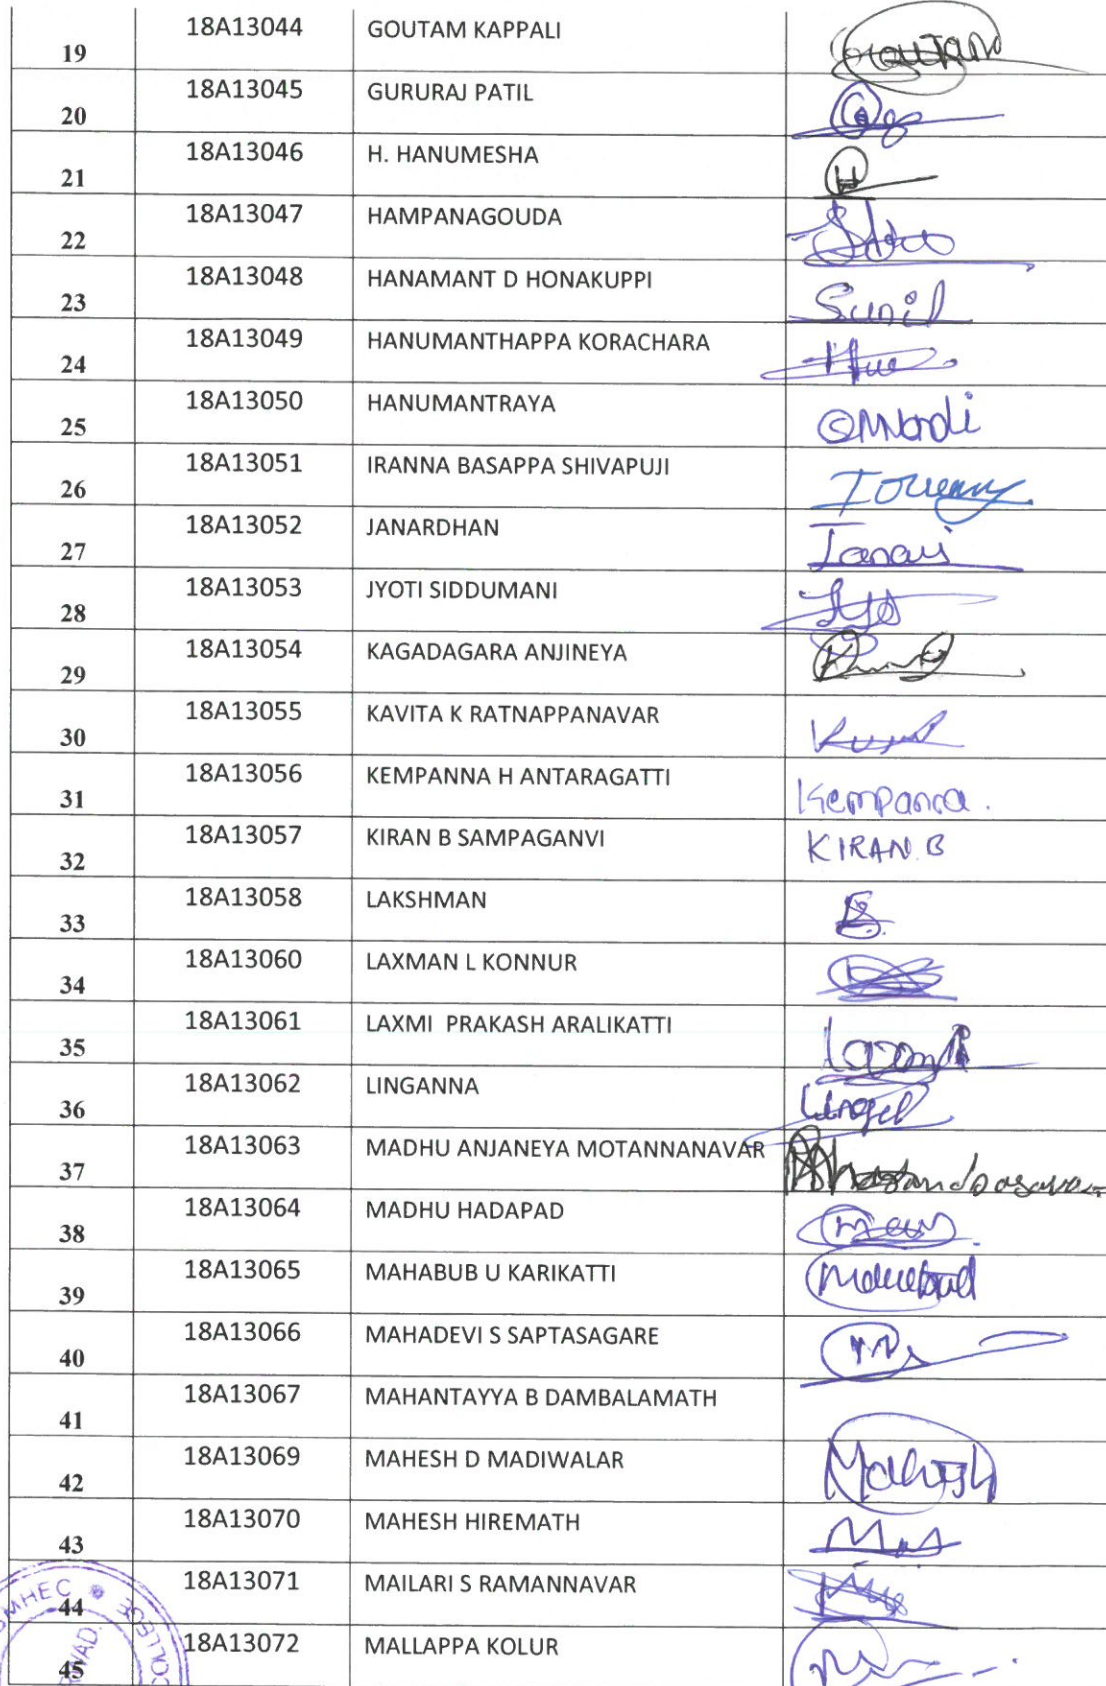 19 18A13044 GOUTAM KAPPALI Goutam
20 18A13045 GURURAJ PATIL
21 18A13046 H. HANUMESHA H
22 18A13047 HAMPANAGOUDA
23 18A13048 HANAMANT D HONAKUPPI Sunil
24 18A13049 HANUMANTHAPPA KORACHARA
25 18A13050 HANUMANTRAYA
26 18A13051 IRANNA BASAPPA SHIVAPUJI
27 18A13052 JANARDHAN
28 18A13053 JYOTI SIDDUMANI
29 18A13054 KAGADAGARA ANJINEYA
30 18A13055 KAVITA K RATNAPPANAVAR
31 18A13056 KEMPANNA H ANTARAGATTI Kempanna.
32 18A13057 KIRAN B SAMPAGANVI KIRAN.B
33 18A13058 LAKSHMAN
34 18A13060 LAXMAN L KONNUR
35 18A13061 LAXMI PRAKASH ARALIKATTI Laxmi
36 18A13062 LINGANNA
37 18A13063 MADHU ANJANEYA MOTANNANAVAR
38 18A13064 MADHU HADAPAD
39 18A13065 MAHABUB U KARIKATTI
40 18A13066 MAHADEVI S SAPTASAGARE
41 18A13067 MAHANTAYYA B DAMBALAMATH
42 18A13069 MAHESH D MADIWALAR Mahesh
43 18A13070 MAHESH HIREMATH
44 18A13071 MAILARI S RAMANNAVAR
45 18A13072 MALLAPPA KOLUR